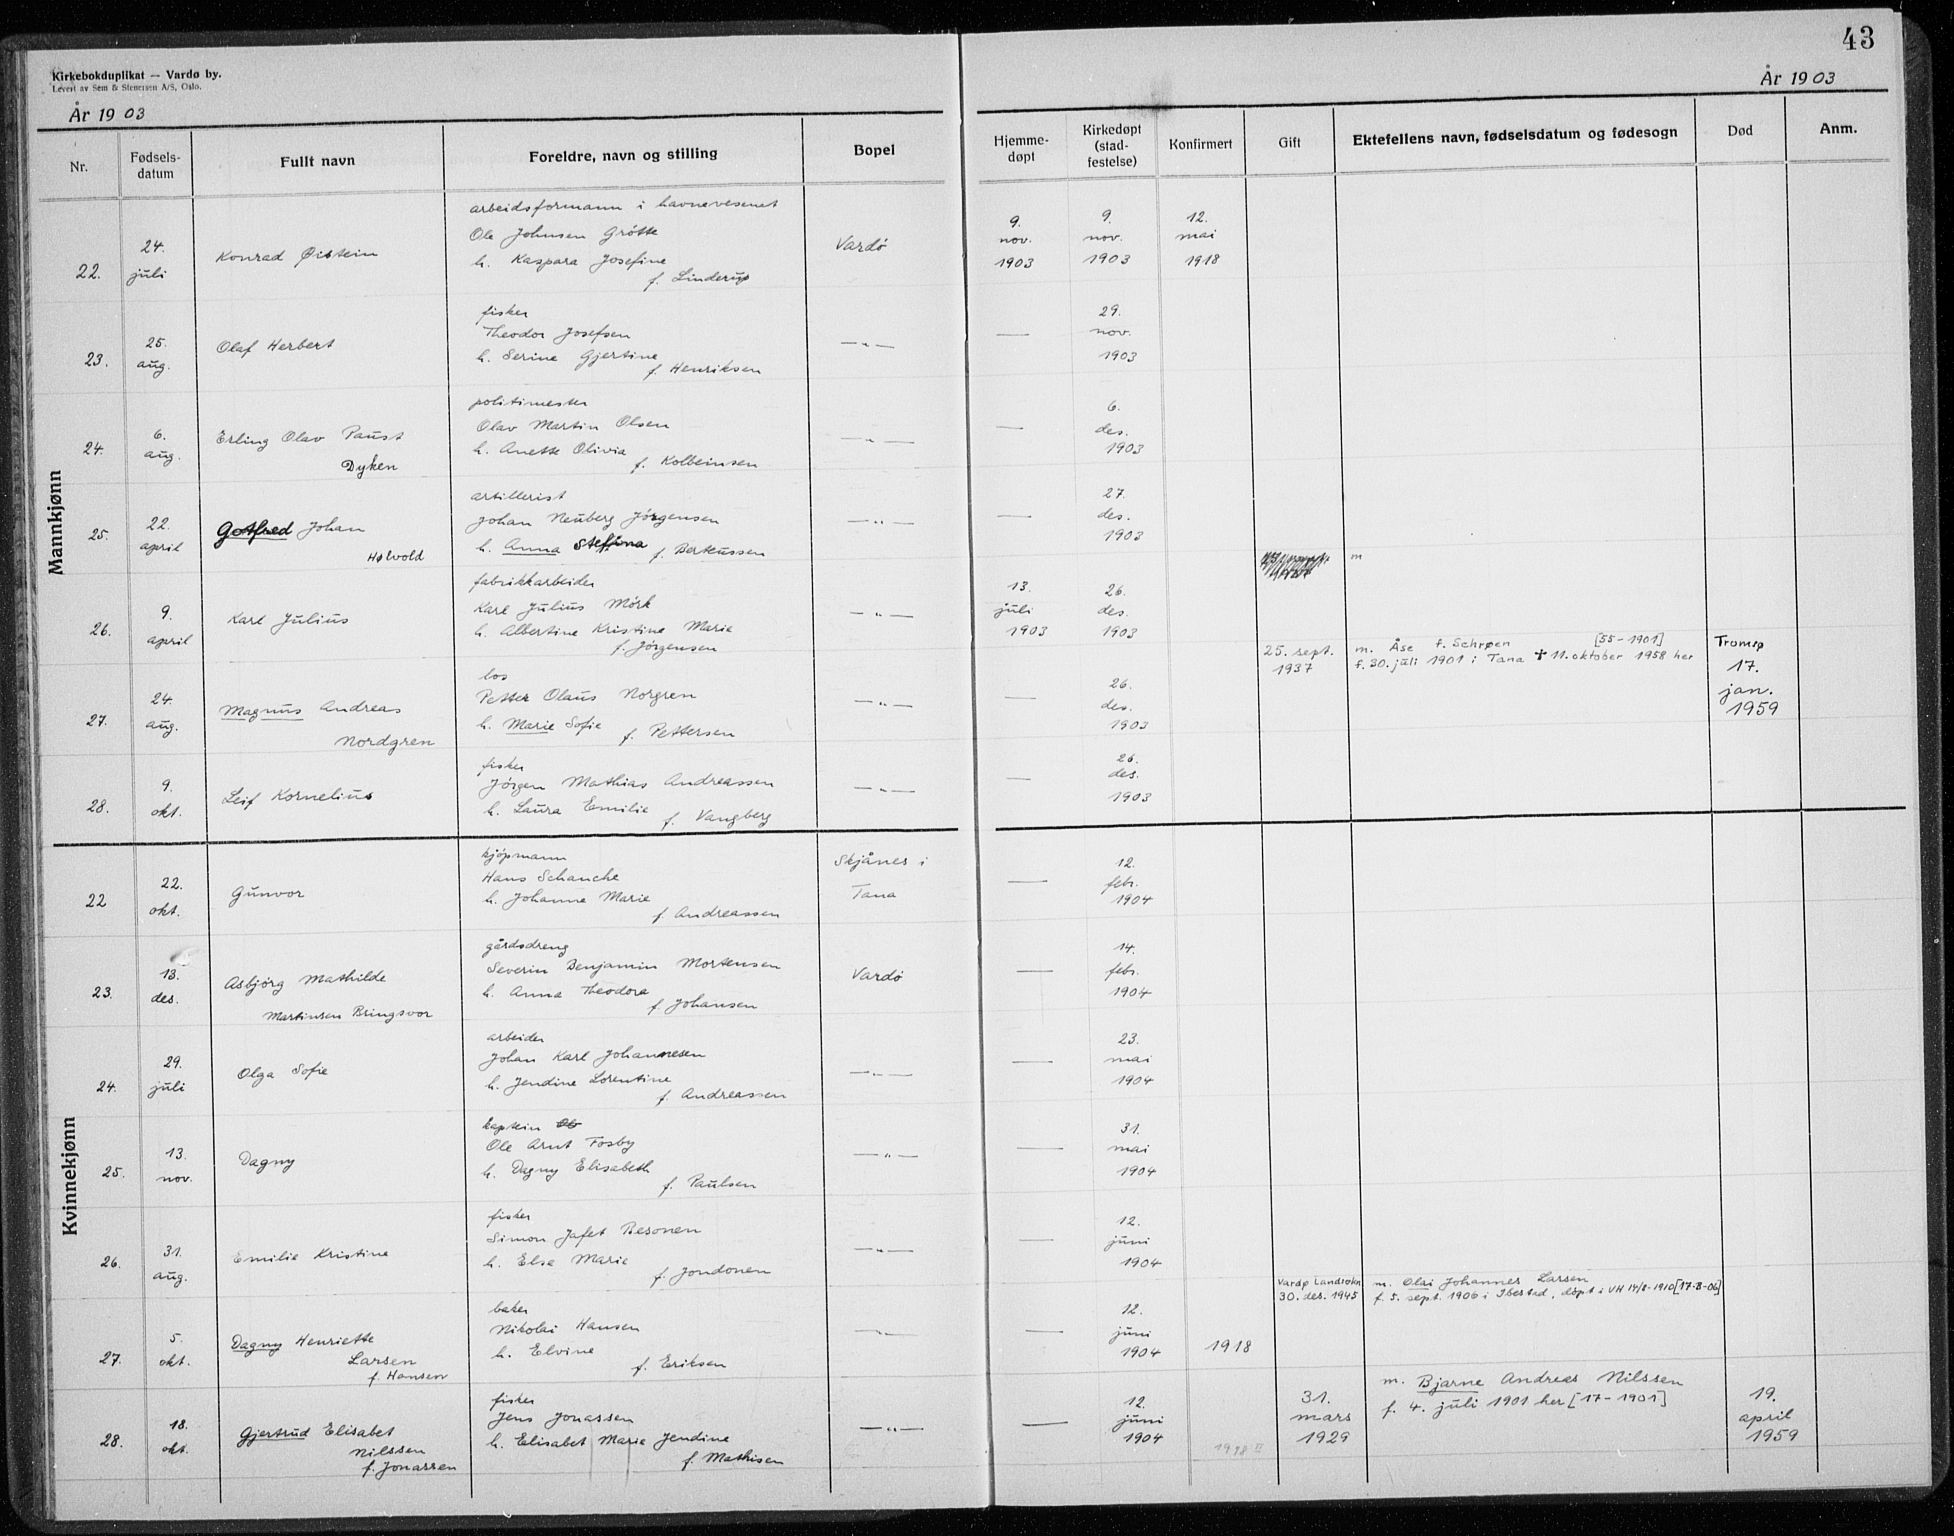 43
Kirkebokduplikat — Vardø by.
Levert av Sem & Stenersen A/S, Oslo.
År 1903
År 1903
Nr.
Fødsels-
datum
Fullt navn
Foreldre, navn og stilling
Bopel
Hjemme-
døpt
Kirkedøpt
(stad-
festelse)
Konfirmert
Gift
Ektefellens navn, fødselsdatum og fødesogn
Død
Anm.
Mannkjønn
22.
24.
juli
Konrad Øistein
arbeidsformann i havnevesenet
Ole Johnsen Grötte
h. Kaspara Josefine
f. Linderup
Vardö
9.
nov.
1903
9.
nov.
1903
12.
mai
1918
23.
25.
aug.
Olaf Herbert
fisker
Theodor Josefsen
h. Serine Gjertine
f. Henriksen
— „ —
—
29.
nov.
1903
24.
6.
aug.
Erling Olav Paust
Dyken
politimester
Olav Martin Olsen
h. Anette Olivia
f. Kolbeinsen
— „ —
—
6.
des.
1903
25.
22.
april
Gotfred Johan
Holvold
artillerist
Johan Neuberg Jörgensen
h. Anna Steffina f. Berteussen
— „ —
—
27.
des.
1903
m
26.
9.
april
Karl Julius
fabrikkarbeider
Karl Julius Mörk
h. Albertine Kristine Marie
f. Jörgensen
— „ —
13.
juli
1903
26.
des.
1903
27.
24.
aug.
Magnus Andreas
Nordgren
los
Petter Olaus Norgren
h. Marie Sofie f. Pettersen
— „ —
—
26.
des.
1903
25. sept.
1937
m. Åse f. Schrøen [55-1901]
f. 30. juli 1901 i Tana ✝ 11. oktober 1958 her
Tromsø
17.
jan.
1959
28.
9.
okt.
Leif Kornelius
fisker
Jörgen Mathias Andreassen
h. Laura Emilie f. Vangberg
— „ —
—
26.
des.
1903
Kvinnekjønn
22
22.
okt.
Gunvor
kjöpmann
Hans Schanche
h. Johanne Marie
f. Andreassen
Skjånes i
Tana
—
12.
febr.
1904
23.
13.
des.
Asbjörg Mathilde
Martinsen Bringsvor
gårdsdreng
Severin Benjamin Mortensen
h. Anna Theodora
f. Johansen
Vardö
—
14.
febr.
1904
24.
29.
juli
Olga Sofie
arbeider
Johan Karl Johannesen
h. Jendine Lorentine
f. Andreassen
— „ —
—
23.
mai
1904
25.
13.
nov.
Dagny
kaptein
Ole Arnt Fosby
h. Dagny Elisabeth
f. Paulsen
— „ —
—
31.
mai
1904
26.
31.
aug.
Emilie Kristine
fisker
Simon Jafet Besonen
h. Elsa Marie
f. Jondonen
— „ —
—
12.
juni
1904
27.
5.
okt.
Dagny Henriette
Larsen
f. Hansen
baker
Nikolai Hansen
h. Elvine
f. Eriksen
— „ —
—
12.
juni
1904
1918
Vardø Landsokn
30. des. 1945
m. Olai Johannes Larsen
f. 5. sept. 1906 i Ibestad, døpt i VH 14/8-1910 [17-8-06]
28.
18.
okt.
Gjertrud Elisabet
Nilssen
f. Jonassen
fisker
Jens Jonassen
h. Elisabet Marie Jendine
f. Mathisen
— „ —
—
12.
juni
1904
1918 II
31.
mars
1929
m. Bjarne Andreas Nilssen
f. 4. juli 1901 her [17-1901]
19.
april
1959